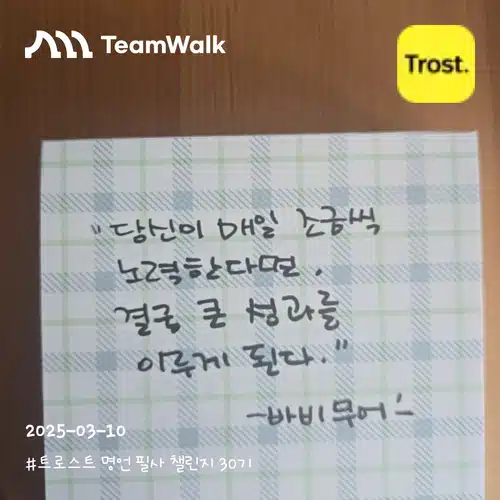 TeamWalk
Trost.
"당신이 매일 조금씩
노력한다면,
결국 큰 성과를
이루게 된다."
-바비 무어-
2025-03-10
#트로스트 명언 필사 챌린지 30기